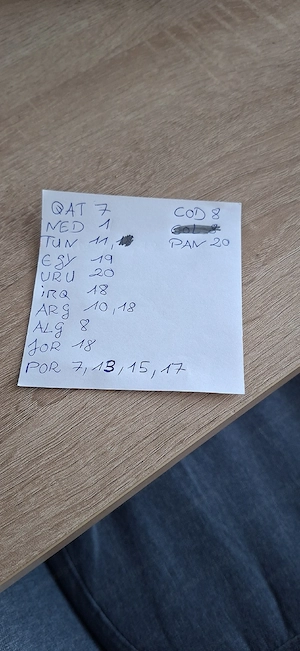 QAT 7
NED 1
TUN 11,
EGY 19
URU 20
IRQ 18
ARG 10, 18
ALG 8
JOR 18
POR 7, 13, 15, 17
COD 8
PAN 20